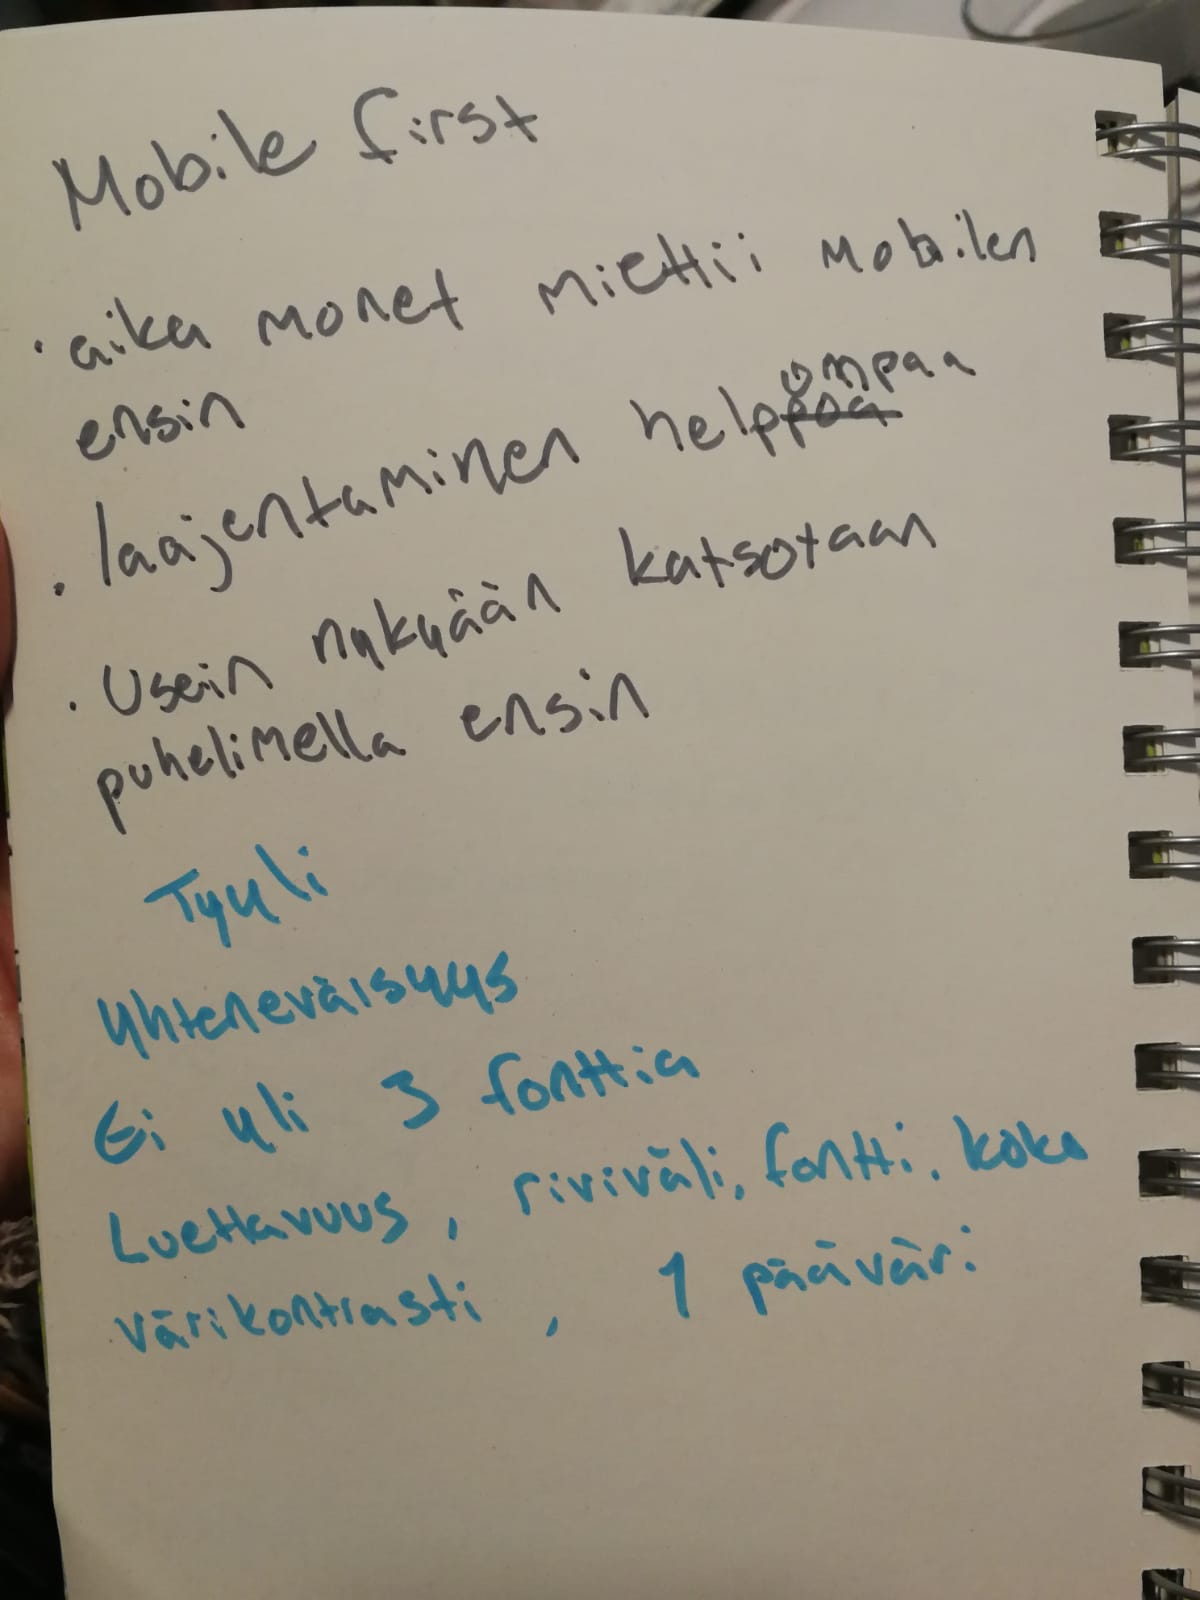 Mobile first
· aika monet miettii mobiilen
ensin
· laajentaminen helpompaa
· Usein nykyään katsotaan
puhelimella ensin
Tyyli
yhteneväisyys
Ei yli 3 fonttia
Luettavuus, riviväli, fontti, koko
värikontrasti, 1 pääväri